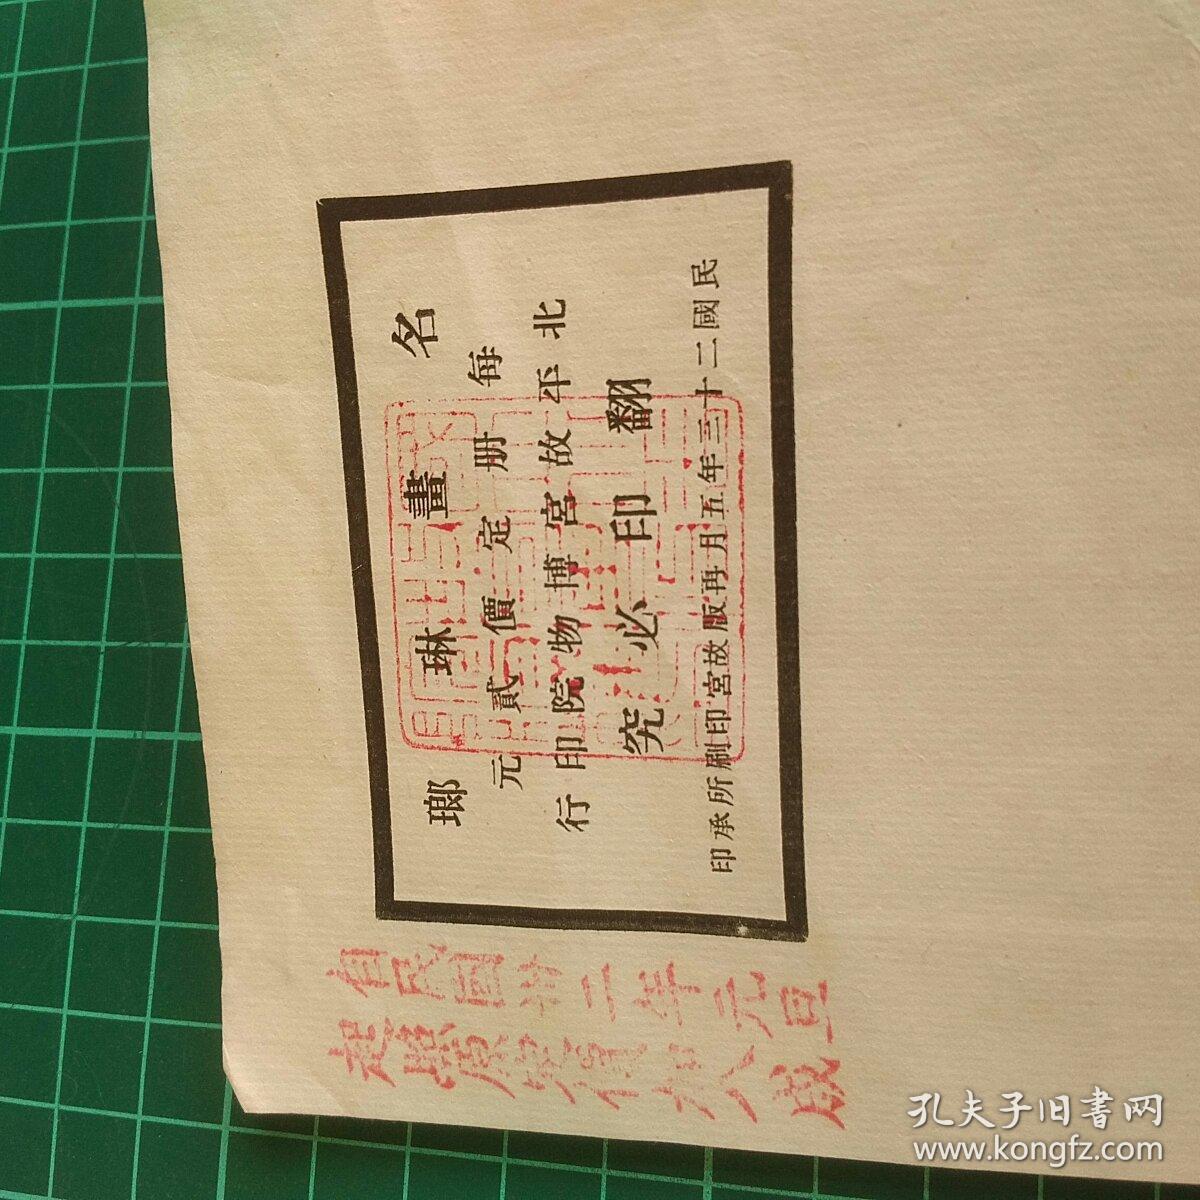 名畫琳瑯
每册定價貳元
北平故宮博物院印行
翻印必究
民國二十三年五月再版故宮印刷所承印
自民國卅二年元旦
起照原定價加八成
孔夫子旧書网
www.kongfz.com